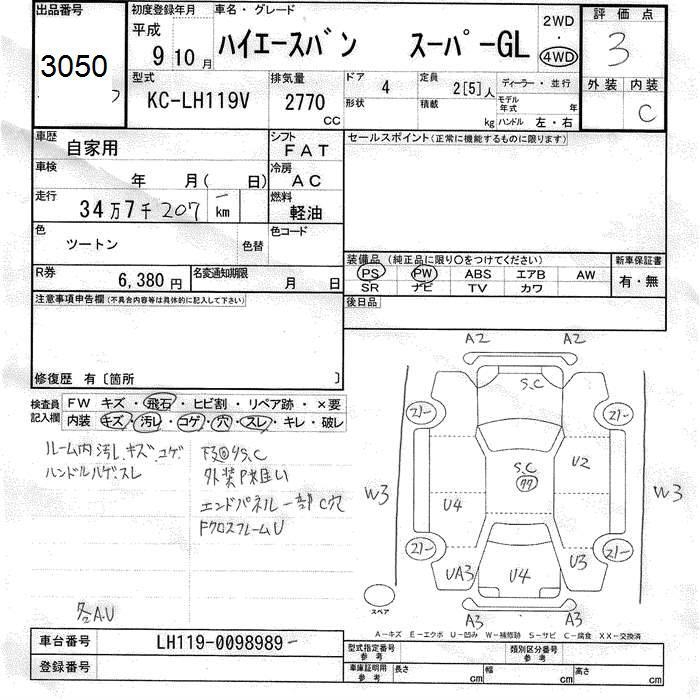 出品番号 初度登録年月 車名・グレード 2WD 評価点
3050 平成 9 10月 ハイエースバン スーパーGL 4WD 3
外装 内装
型式 排気量 ドア 4 定員 2[5]人 ディーラー・並行
KC-LH119V 2770 CC 形状 積載 kg モデル年式 年
ハンドル 左・右 C
車歴 自家用 シフト FAT セールスポイント(正常に機能するものに限ります)
車検 年 月( 日) 冷房 AC
走行 34万7千207 km 燃料 軽油
色 ツートン 色替 色コード
装備品(純正品に限り○をつけてください) 新車保証書
R券 6,380円 名変通知期限 月 日 PS PW ABS エアB AW 有・無
SR ナビ TV カワ
注意事項申告欄(不具合内容等は具体的に記入して下さい) 後日品
修復歴 有〔箇所
検査員 FW キズ・飛石・ヒビ割・リペア跡・×要
記入欄 内装 キズ・汚レ・コゲ・穴・スレ・キレ・破レ
ルーム内 汚レ.キズ.コゲ
ハンドルハゲ.スレ
下廻りS.C
外装P
エンドパネル一部C穴
FクロスフレームU
各A.U
A2 A2
S.C
21- 21-
S.C
77
U2
W3 U4 W3
21- 21-
UA3 U4 U3
スペア
A3 A3
A-キズ E-エクボ U-凹み W-補修跡 S-サビ C-腐食 XX-交換済
車台番号 LH119-0098989-
型式指定番号 参考 類別区分番号 参考
登録番号
車庫証明用 参考 長さ cm 幅 cm 高さ cm